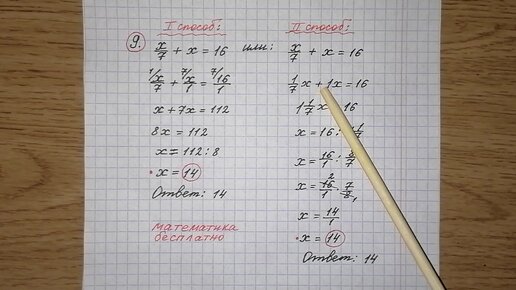 I способ:
9. x/7 + x = 16 или:
1/ x/7 + 7/ x/1 = 7/ 16/1
x + 7x = 112
8x = 112
x = 112 : 8
• x = 14
Ответ: 14
математика
бесплатно
II способ:
x/7 + x = 16
1/7 x + 1x = 16
1 1/7 x = 16
x = 16 :
x = 16/1 : 8/7
x = 16/1 · 7/8 2 1
x = 14/1
• x = 14
Ответ: 14